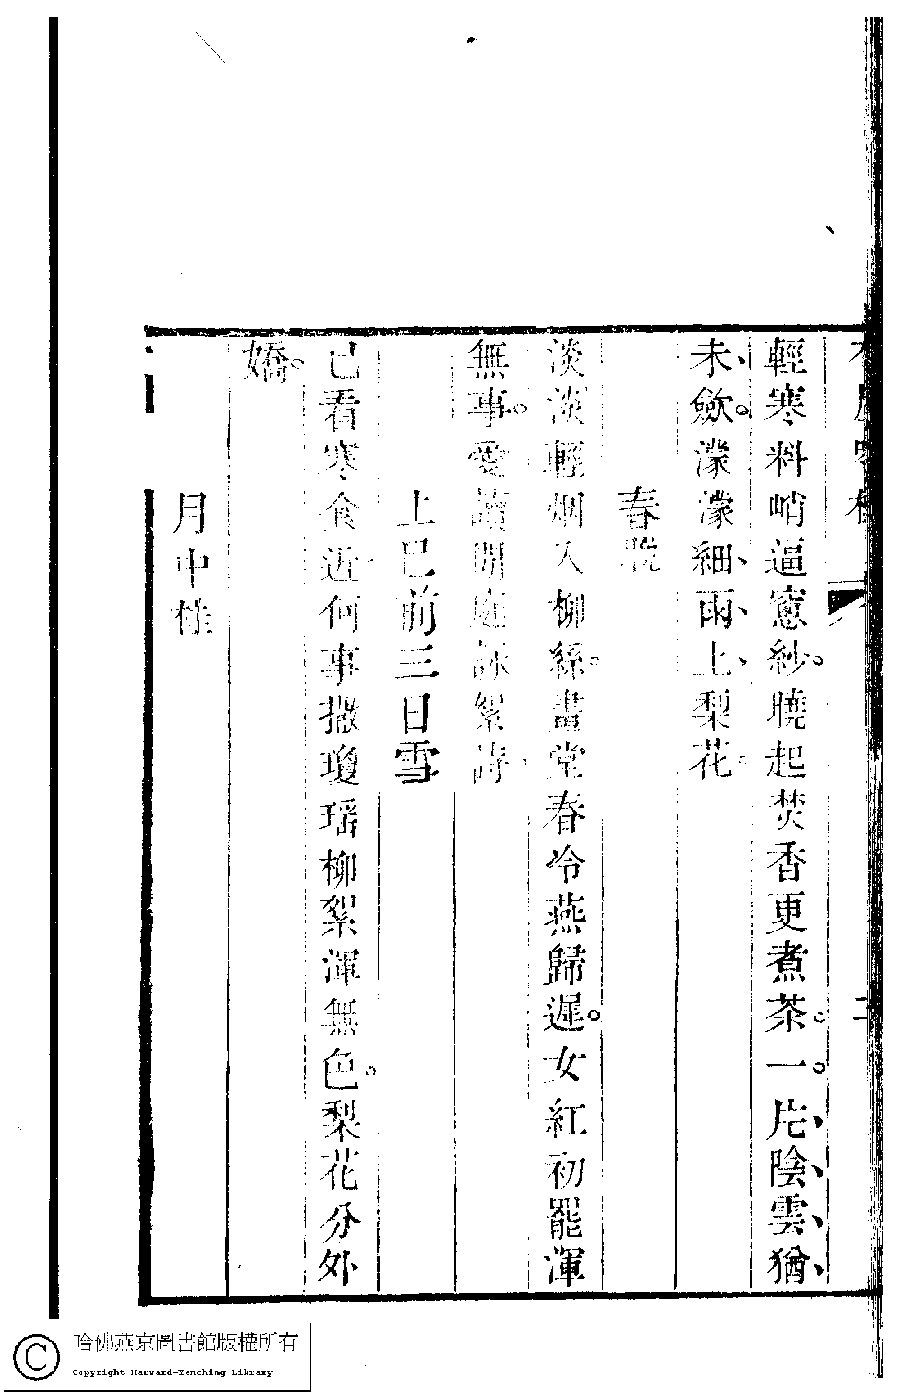 輕寒料峭逼窻紗。曉起焚香更煮茶。一片陰雲猶
未歛。濛濛細雨上梨花
春晚
淡淡輕烟入柳絲。畫堂春冷燕歸遲。女紅初罷渾
無事。愛讀閒庭詠絮詩
上巳前三日雪
已看寒食近何事撒瓊瑶柳絮渾無色。梨花分外
嬌。
月中桂
哈佛燕京圖書館版權所有
Copyright Harvard-Yenching Library